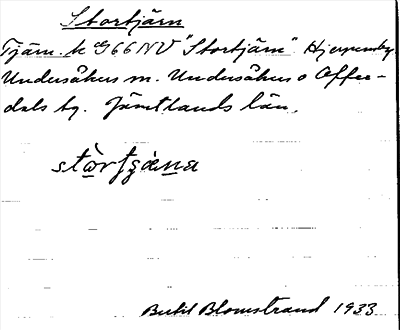 Stortjärn
Tjärn. k G66NV "Stortjärn" Hjerpenby.
Undersåkers sn. Undersåkers o Offer-
dals tg. Jämtlands län.
stòrtʒæ̀na
Bertil Blomstrand 1933